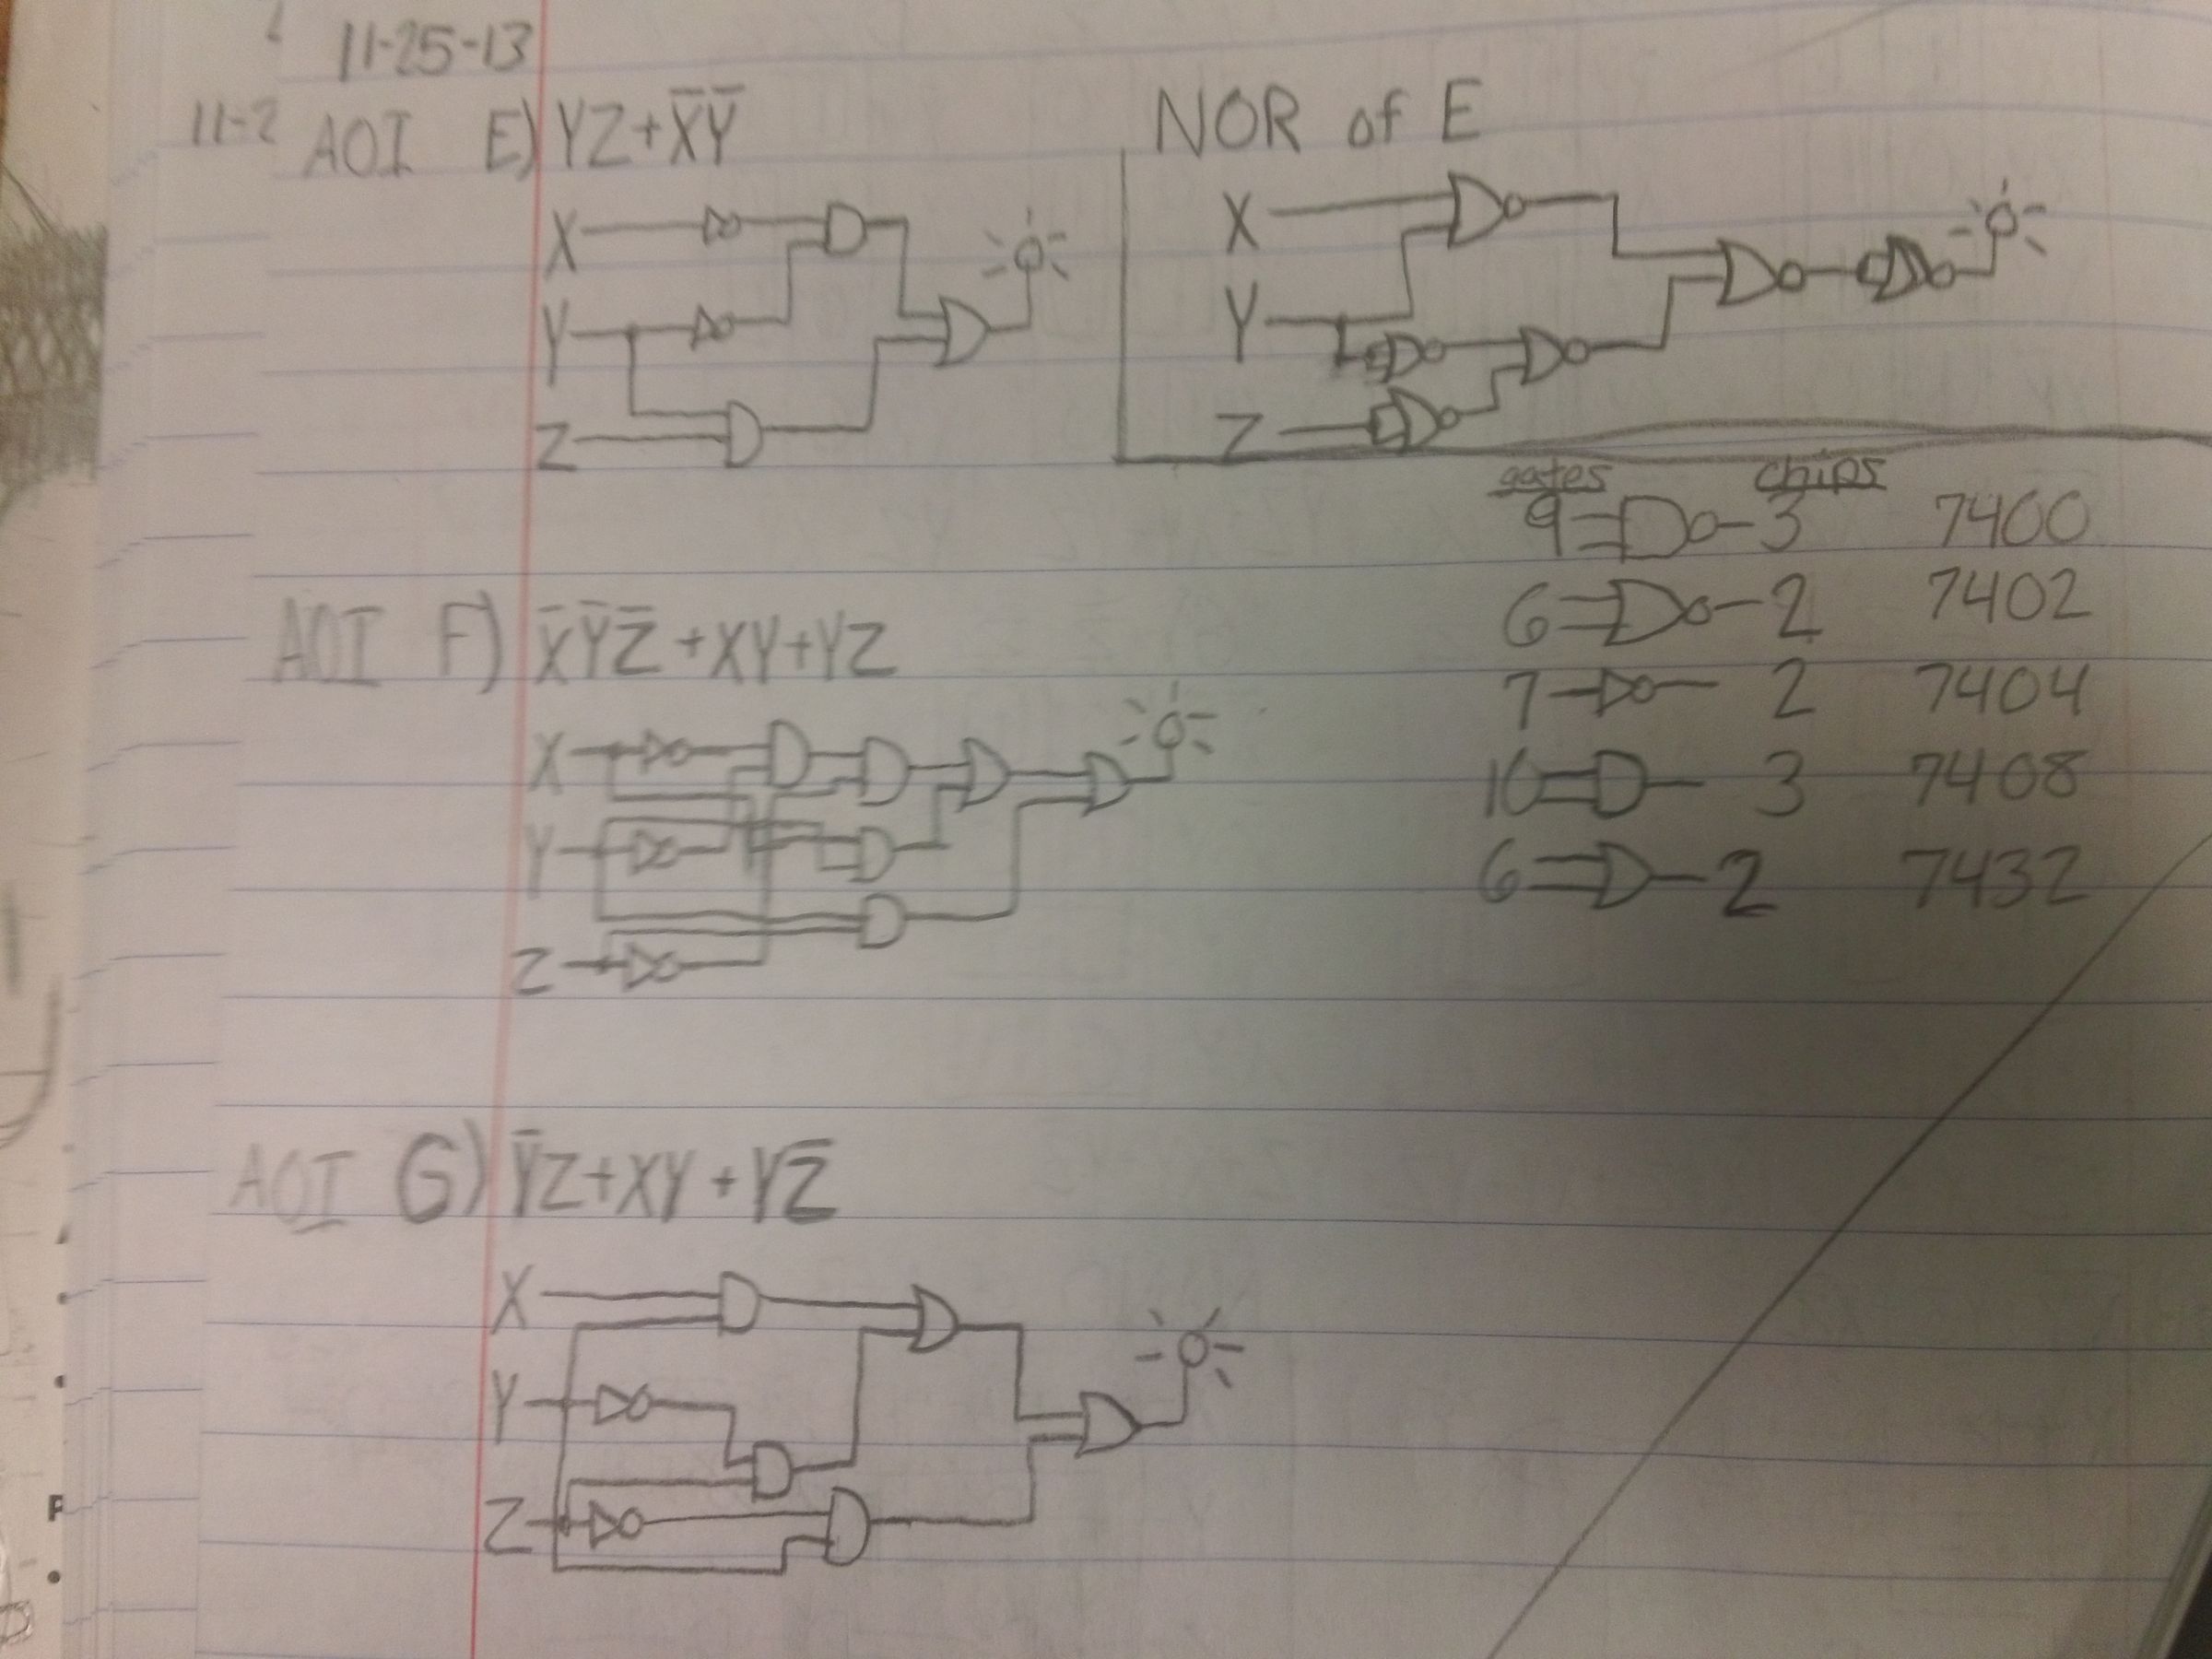 11-25-13
11-2 AOI E) YZ+X̅Y̅
X
Y
Z
NOR of E
X
Y
Z
gates chips
9 3 7400
6 2 7402
7 2 7404
10 3 7408
6 2 7432
AOI F) X̅Y̅Z̅+XY+YZ
X
Y
Z
AOI G) Y̅Z+XY+YZ̅
X
Y
Z